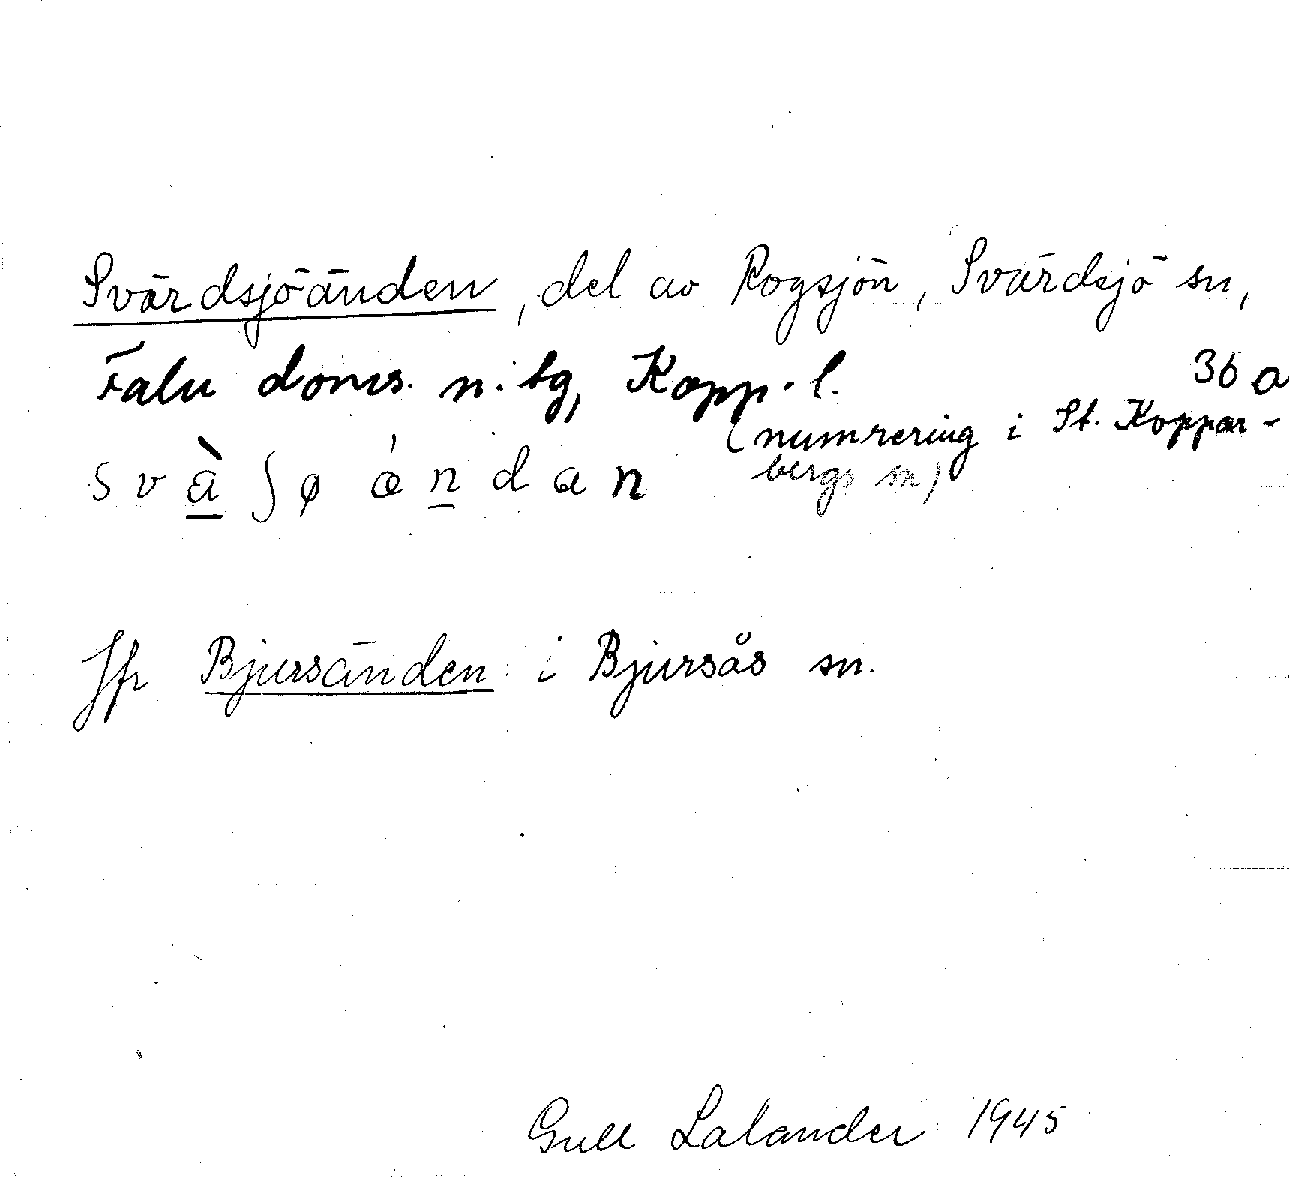 Svärdsjöänden, del av Rogsjön, Svärdsjö sn,
Falu doms. n. tg, Kopp. l. 36 a
(numrering i St. Koppar-
bergs sn)
s v à̱ ʃ ø ǽ ṉ d a n
Jfr Bjursänden i Bjursås sn.
Gull Lalander 1945